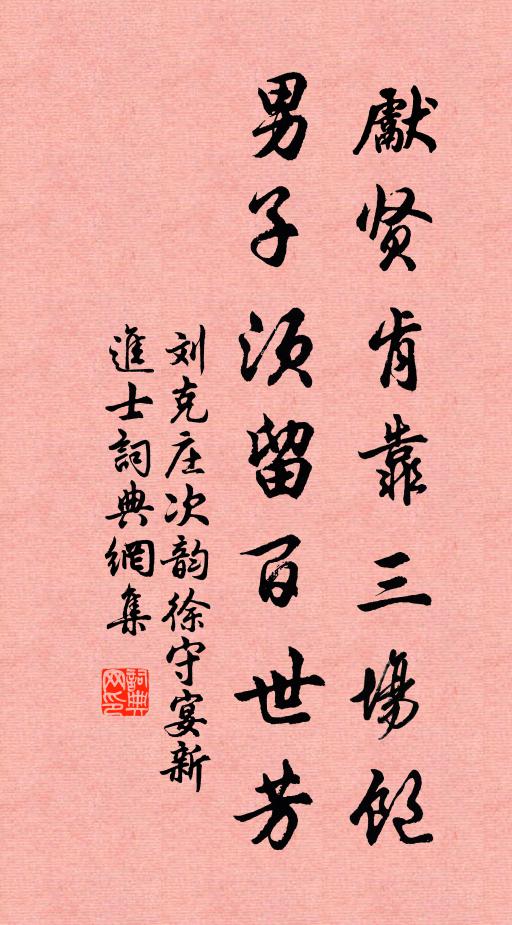 獻贤肯靠三場飽
男子须留百世芳
刘克庄次韵徐守宴新
進士詞典網集
詞典
网印